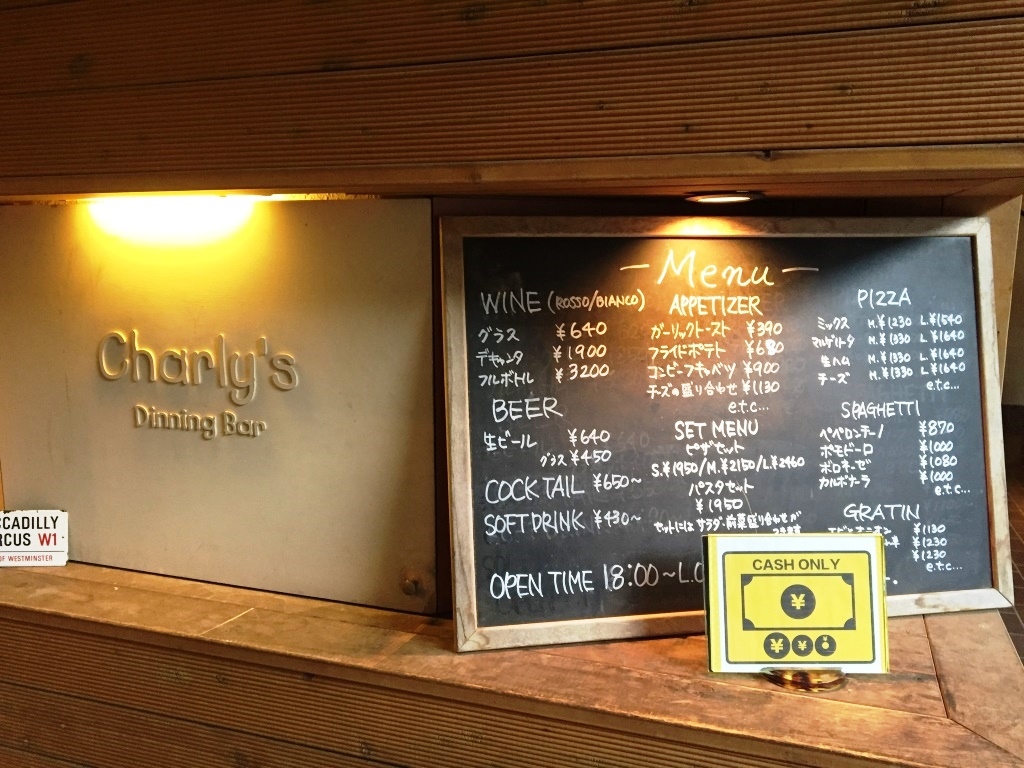 Charly's
Dinning Bar
CCADILLY
RCUS W1
OF WESTMINSTER
Menu
WINE (ROSSO/BIANCO)
グラス ¥640
デキャンタ ¥1900
フルボトル ¥3200
BEER
生ビール ¥640
グラス ¥450
COCKTAIL ¥650~
SOFT DRINK ¥430~
APPETIZER
ガーリックトースト ¥390
フライドポテト
コンビーフキャベツ ¥900
チーズの盛り合わせ ¥1130
e.t.c...
SET MENU
ピザセット
S.¥1950/M.¥2150/L.¥2460
パスタセット
¥1950
セットにはサラダ・前菜盛り合わせが
PIZZA
ミックス M.¥1230 L.¥1540
マルゲリータ M.¥1330 L.¥1640
生ハム M.¥1330 L.¥1640
チーズ M.¥1330 L.¥1640
e.t.c...
SPAGHETTI
ペペロンチーノ ¥870
ポモドーロ ¥1000
ボロネーゼ ¥1080
カルボナーラ ¥1000
e.t.c...
GRATIN
¥1130
¥1230
¥1230
e.t.c...
OPEN TIME 18:00~L.O
CASH ONLY
¥
¥ ¥